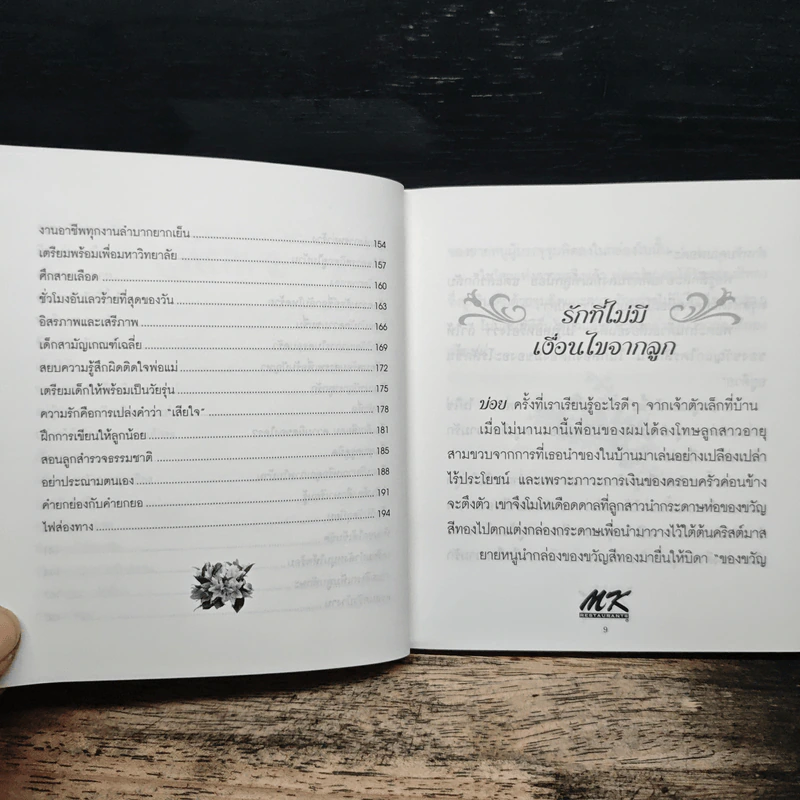 งานอาชีพทุกงานลำบากยากเย็น 154
เตรียมพร้อมเพื่อมหาวิทยาลัย 157
ศึกสายเลือด 160
ชั่วโมงอันเลวร้ายที่สุดของวัน 163
อิสรภาพและเสรีภาพ 166
เด็กสามัญเกณฑ์เฉลี่ย 169
สยบความรู้สึกผิดติดใจพ่อแม่ 172
เตรียมเด็กให้พร้อมเป็นวัยรุ่น 175
ความรักคือการเปล่งคำว่า "เสียใจ" 178
ฝึกการเขียนให้ลูกน้อย 181
สอนลูกสำรวจธรรมชาติ 185
อย่าประณามตนเอง 188
ค่ายกย่องกับค่ายกยอ 191
ไฟส่องทาง 194
รักที่ไม่มี
เงื่อนไขจากลูก
บ่อย ครั้งที่เราเรียนรู้อะไรดีๆ จากเจ้าตัวเล็กที่บ้าน
เมื่อไม่นานมานี้เพื่อนของผมได้ลงโทษลูกสาวอายุ
สามขวบจากการที่เธอนำของในบ้านมาเล่นอย่างเปลืองเปล่า
ไร้ประโยชน์ และเพราะภาวะการเงินของครอบครัวค่อนข้าง
จะตึงตัว เขาจึงโมโหเดือดดาลที่ลูกสาวนำกระดาษห่อของขวัญ
สีทองไปตกแต่งกล่องกระดาษเพื่อนำมาวางไว้ใต้ต้นคริสต์มาส
ยายหนูนำกล่องของขวัญสีทองมายื่นให้บิดา "ของขวัญ
MK
RESTAURANTS
9